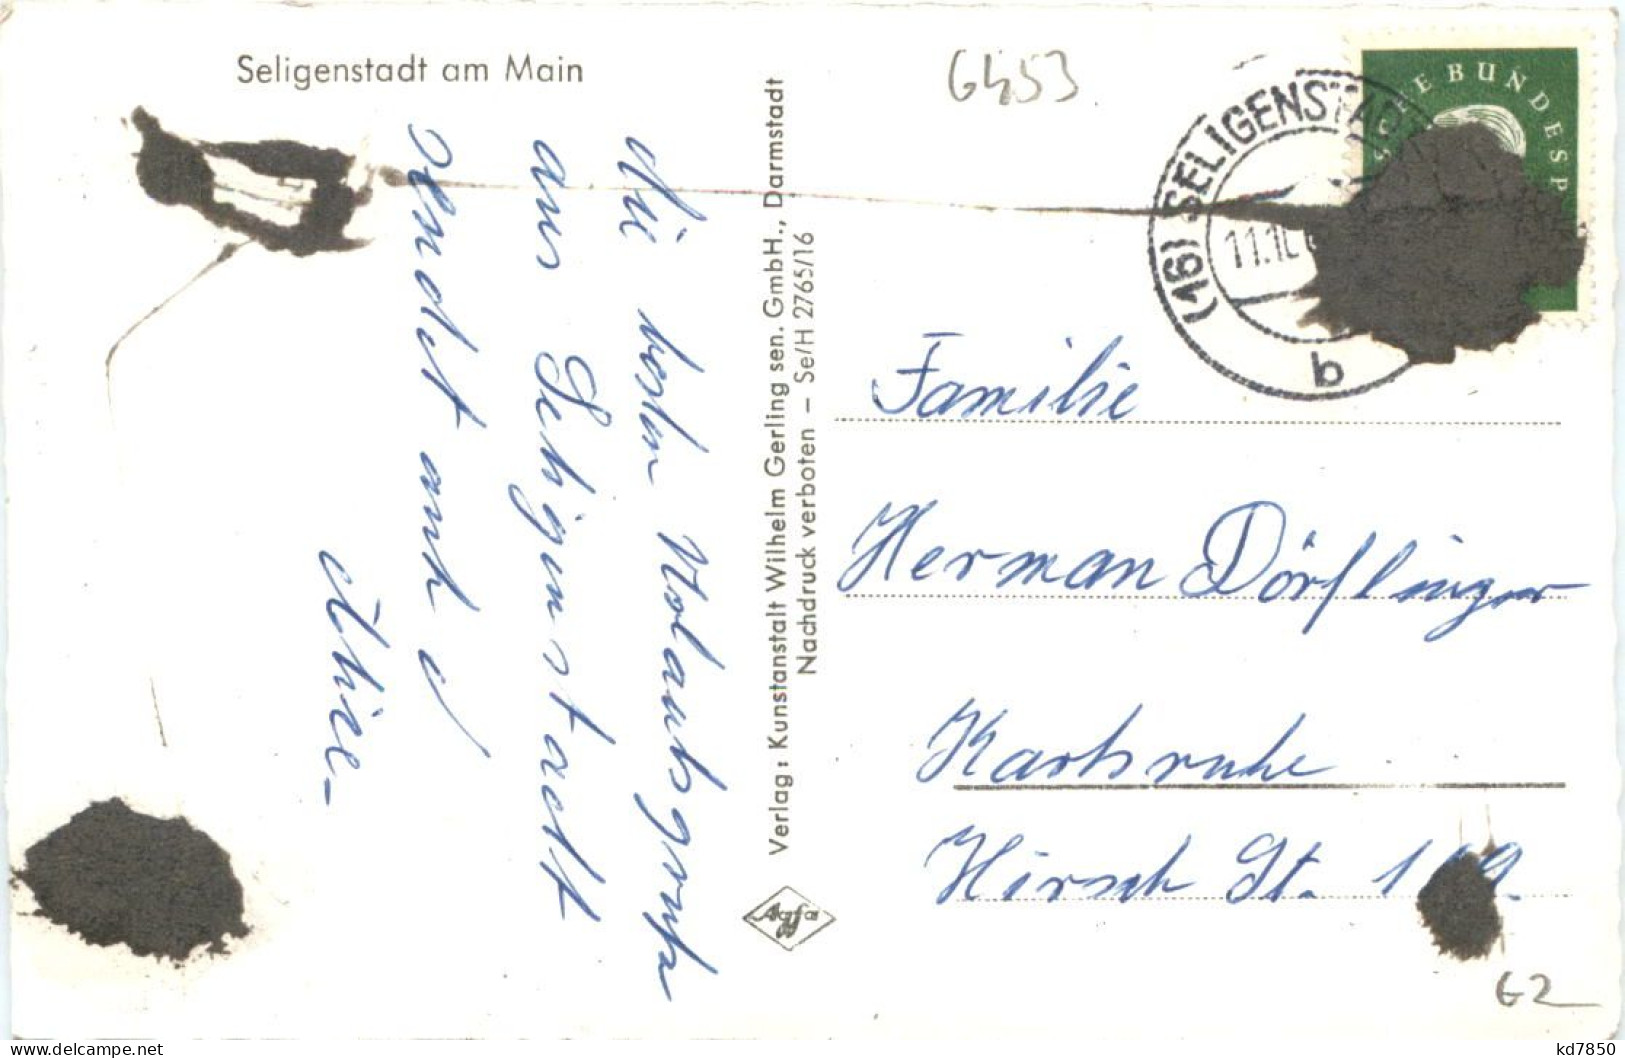 Seligenstadt am Main
6453
die besten Urlaubsgrüße
aus Seligenstadt
sendet euch
Verlag: Kunstanstalt Wilhelm Gerling sen. GmbH., Darmstadt
Nachdruck verboten – Se/H 2765/16
Agfa
(16) SELIGENSTAD
11.10
b
E BUNDESP
Familie
Herman Dörflinger
Karlsruhe
Hirsch St. 1 9.
G2
kd7850